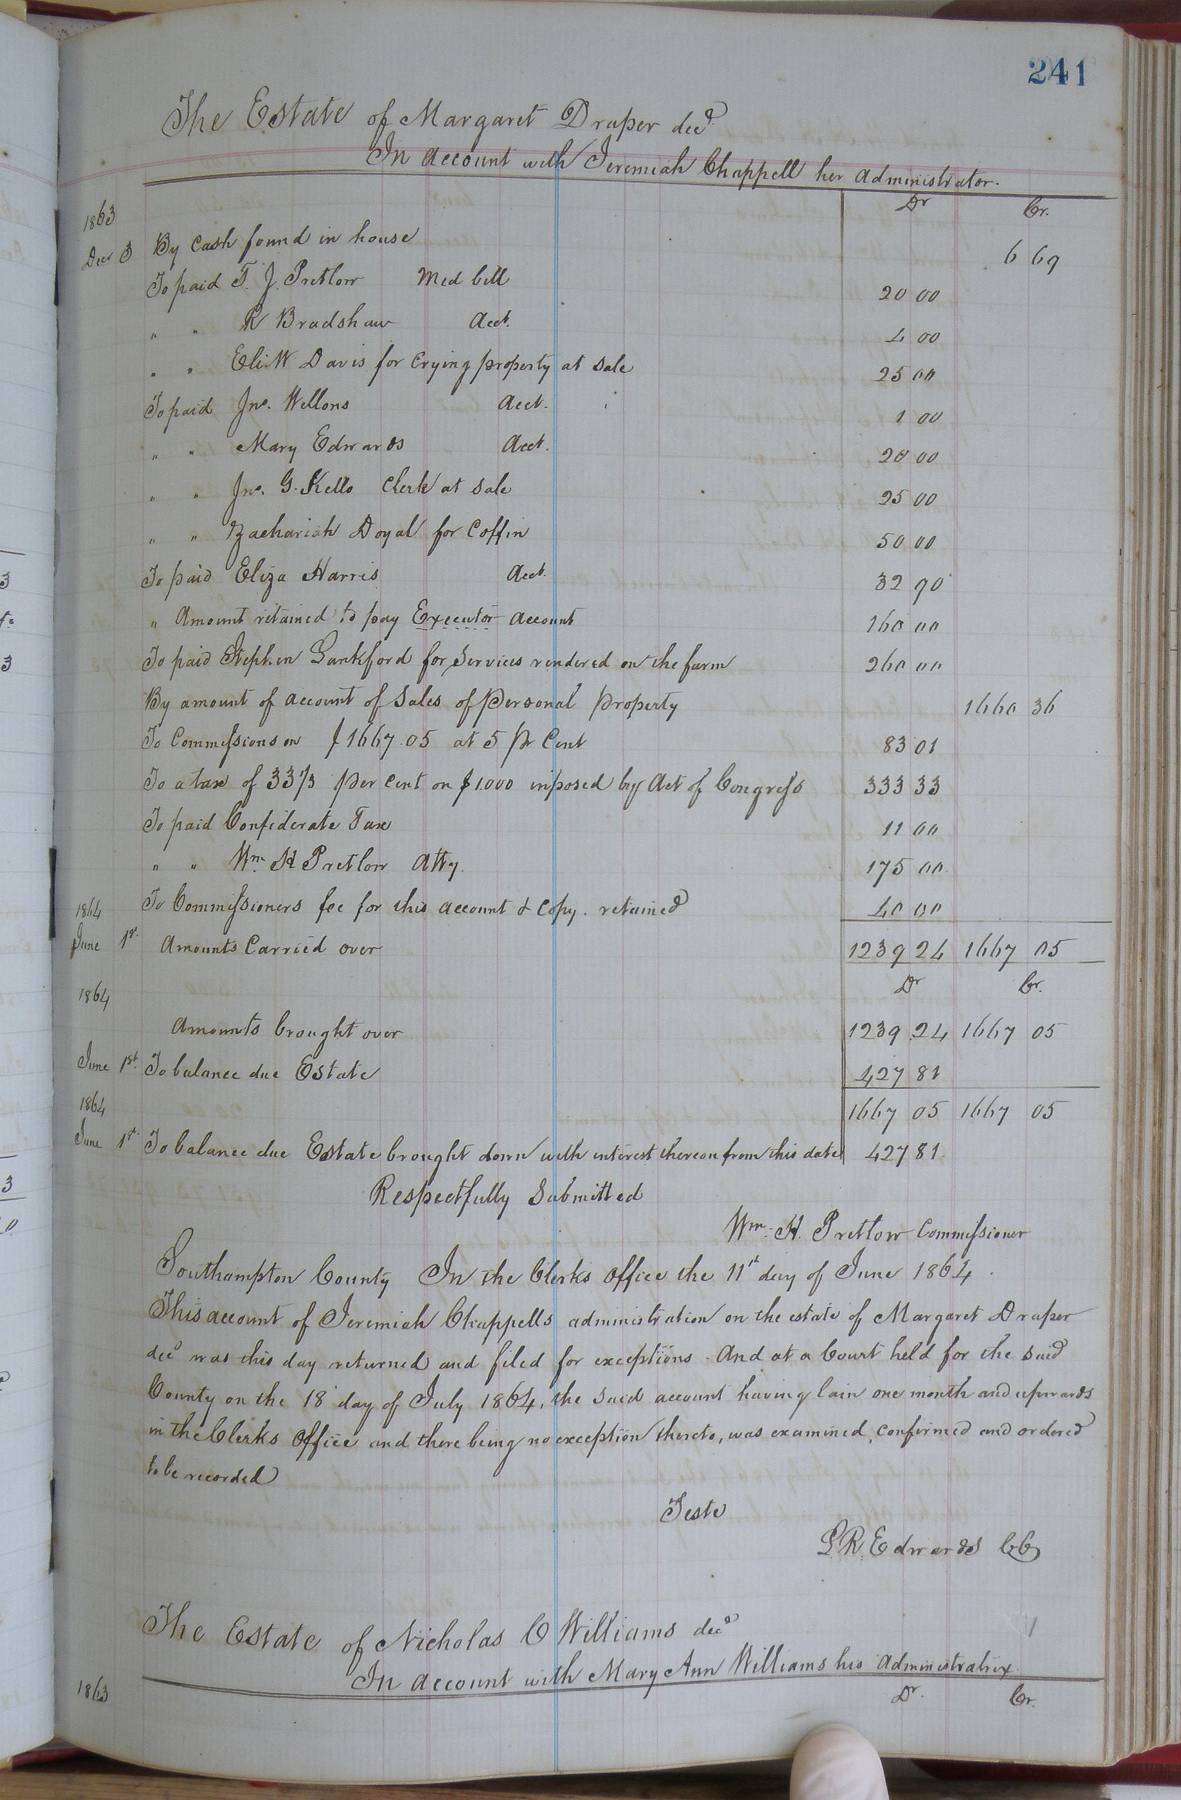 241
The Estate of Margaret Draper decd
In account with Jeremiah Chappell her Administrator.
Dr Cr.
1863
Decr 3 By Cash found in house 6 69
To paid T. J. Pretlow Med bill 20 00
" " R Bradshaw Acct. 4 00
" " Eli W Davis for Crying property at sale 25 00
To paid Jno. Wellons Acct. 1 00
" " Mary Edwards Acct. 20 00
" " Jno. G. Kello Clerk at sale 25 00
" " Zachariah Doyal for Coffin 50 00
To paid Eliza Harris Acct. 32 90
" Amount retained to pay Executor account 160 00
To paid Stephen Lankford for services rendered on the farm 260 00
By amount of account of sales of personal property 1660 36
To Commissions on $1667.05 at 5 Pr Cent 83 01
To a tax of 33 1/3 per cent on $1.000 imposed by Act of Congress 333 33
To paid Confederate Tax 11 00
" " Wm. H Pretlow Atty. 175 00
To Commissioners fee for this account & Copy. retained 40 00
1864
June 1st Amounts Carried over 1239 24 1667 05
Dr Cr.
1864
Amounts brought over 1239 24 1667 05
June 1st To balance due Estate 427 81
1667 05 1667 05
1864
June 1st To balance due Estate brought down with interest thereon from this date 427 81
Respectfully Submitted
Wm. H. Pretlow Commissioner
Southampton County In the Clerks Office the 11st day of June 1864.
This account of Jeremiah Chappells administration on the estate of Margaret Draper
decd was this day returned and filed for exceptions. And at a Court held for the said
County on the 18 day of July 1864, the said account having lain one month and upwards
in the Clerks Office and there being no exception thereto, was examined, confirmed and ordered
to be recorded
Teste
L R Edwards CC
The Estate of Nicholas C Williams decd
In account with Mary Ann Williams his Administratrix
1863 Dr. Cr.